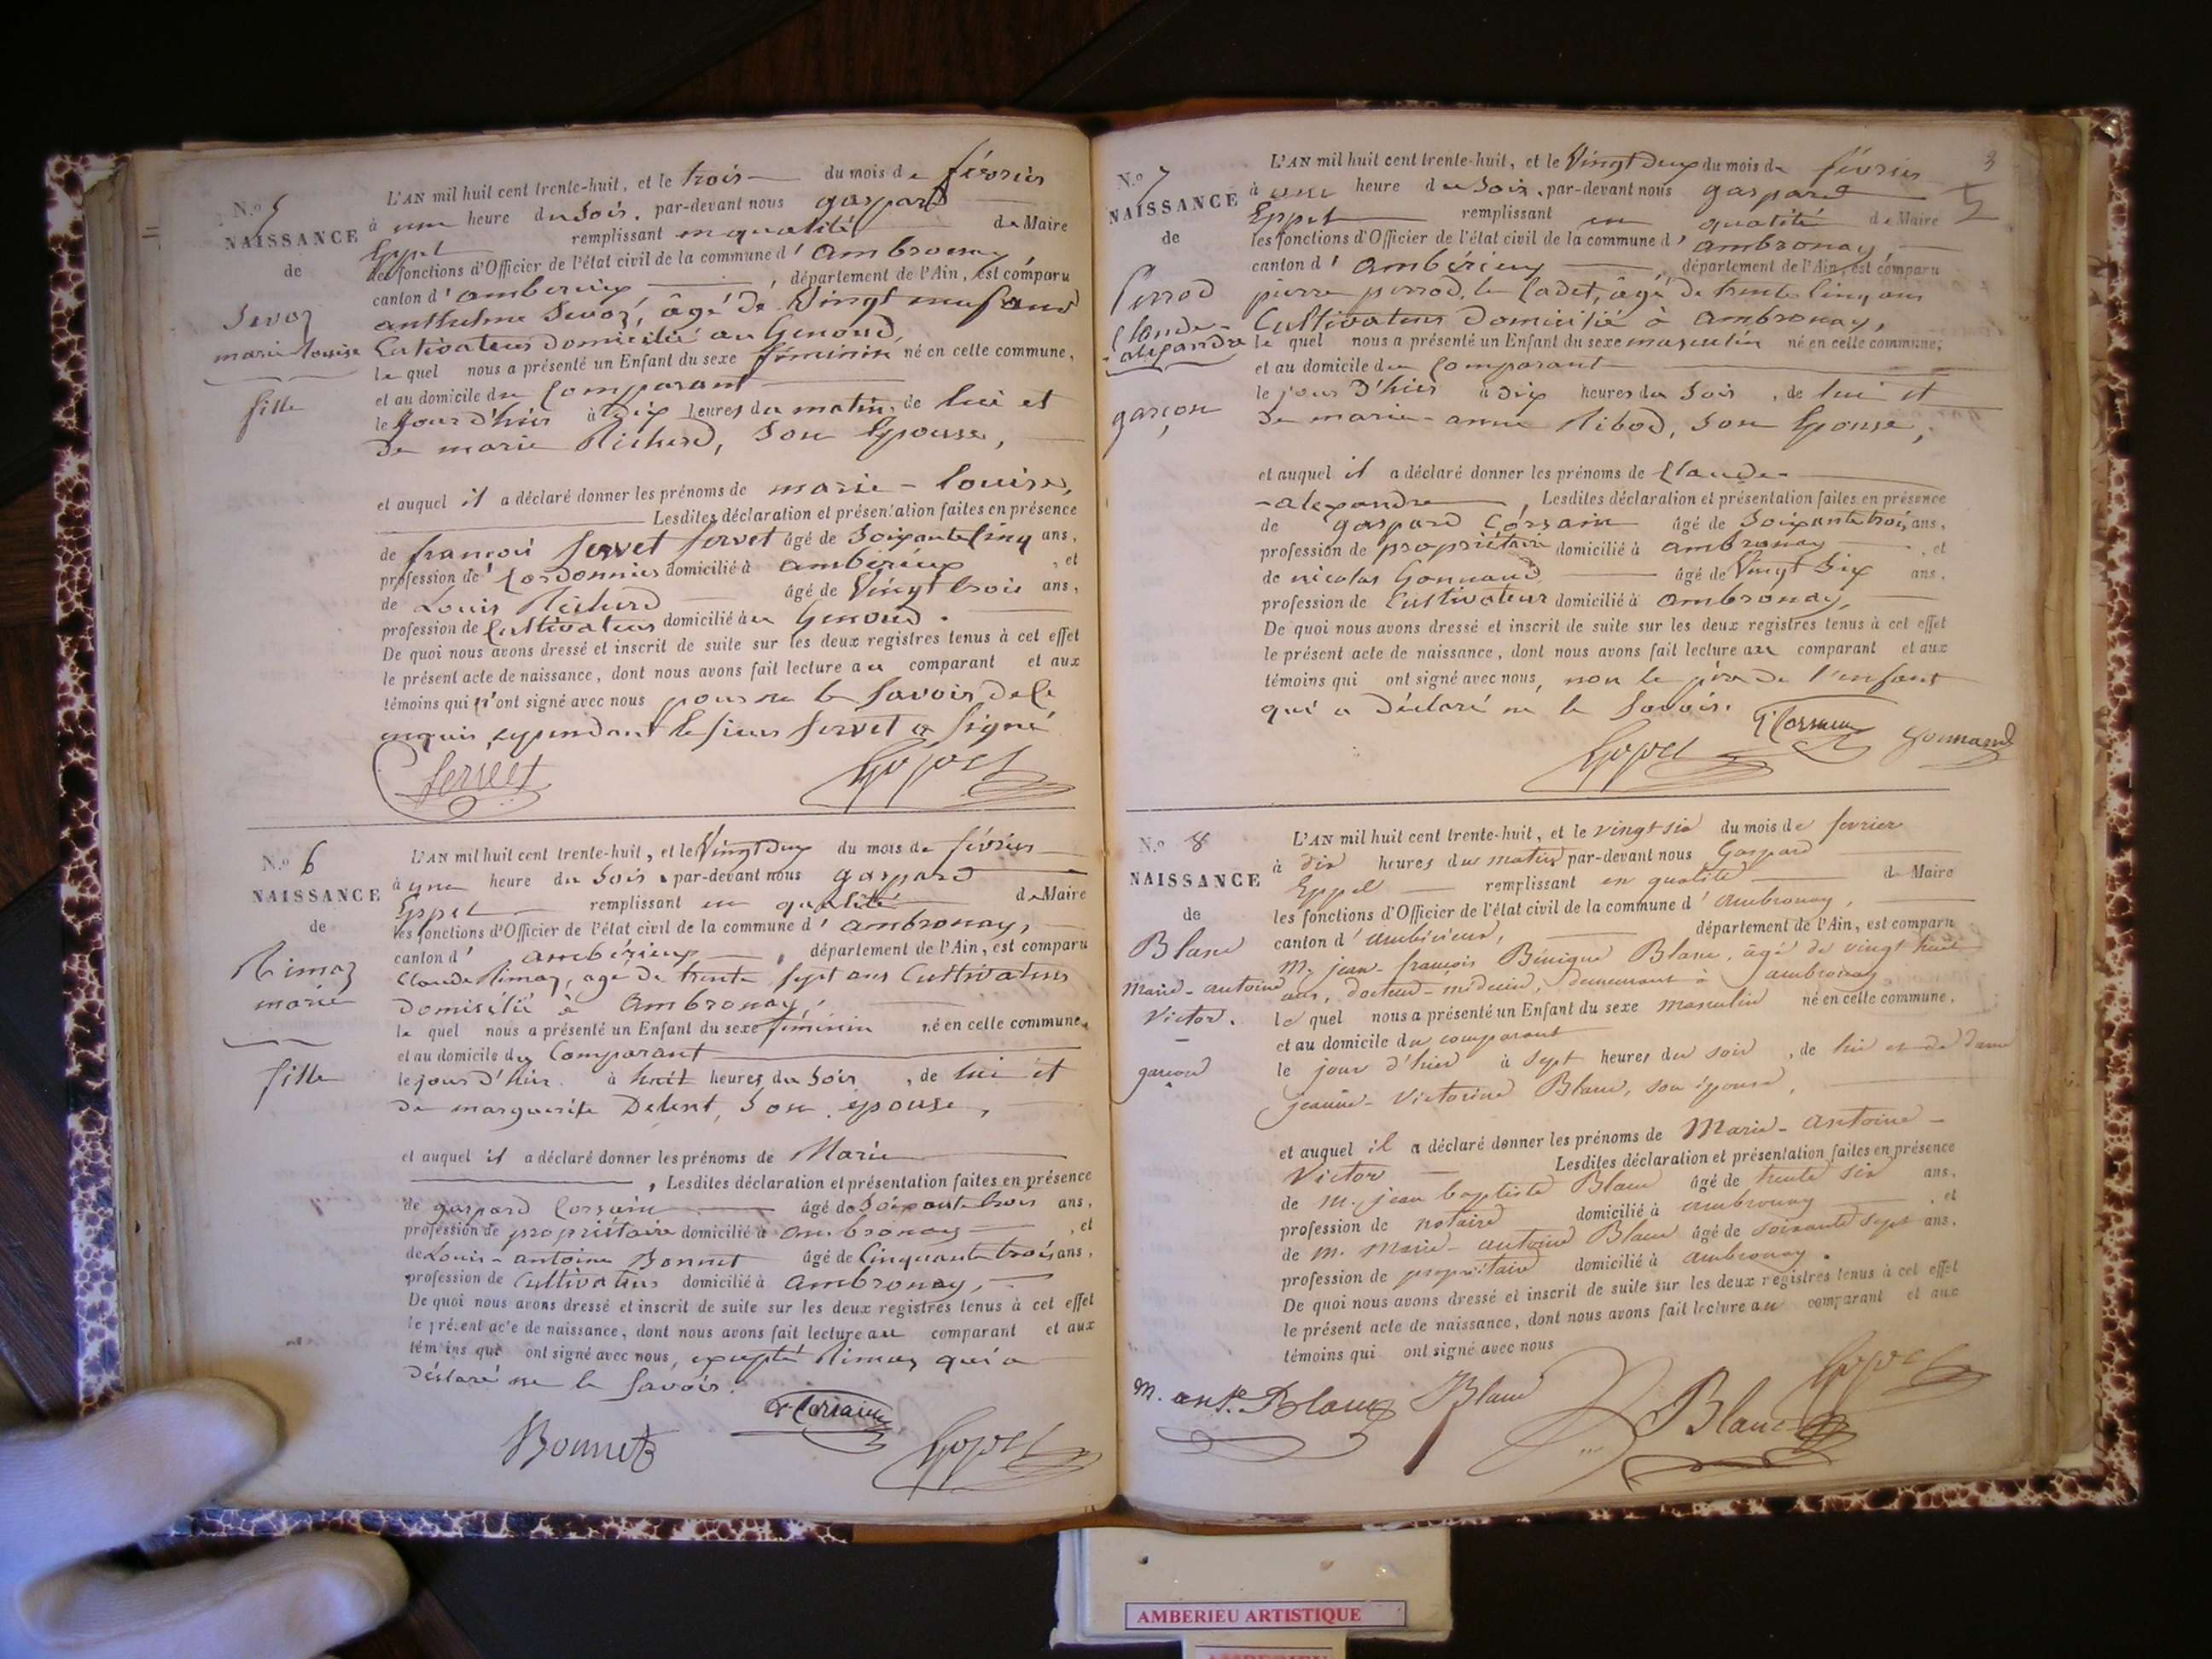 N.o 5
NAISSANCE
de
Sevoz
marie Louise
fille
L'AN mil huit cent trente-huit, et le trois du mois de février
à une heure du Soir, par-devant nous gaspard
Eppel remplissant en qualité de Maire
les fonctions d'Officier de l'état civil de la commune d'ambronay
canton d'amberieux, département de l'Ain, est comparu
anthelme Sevoz, âgé de Vingt neuf ans
Cultivateur domicilié au Genoud,
le quel nous a présenté un Enfant du sexe féminin né en cette commune,
et au domicile du Comparant
le Jour d'hier à dix heures du matin, de lui et
de marie Richerd, Son Epouse,
et auquel il a déclaré donner les prénoms de marie - Louise,
Lesdites déclaration et présentation faites en présence
de françois Servet Servet âgé de Soixante Cinq ans,
profession de Cordonnier domicilié à ambérieux, et
de Louis Richerd âgé de Vingt trois ans,
profession de Cultivateur domicilié au Genoud.
De quoi nous avons dressé et inscrit de suite sur les deux registres tenus à cet effet
le présent acte de naissance, dont nous avons fait lecture au comparant et aux
témoins qui n'ont signé avec nous pour ne le Savoir de ce
enquis, cependant le sieur Servet a Signé
Servet Eppel
N.o 6
NAISSANCE
de
Rimaz
marie
fille
L'AN mil huit cent trente-huit, et le Vingt Deux du mois de février
à une heure du Soir, par-devant nous gaspard
Eppel remplissant en qualité de Maire
les fonctions d'Officier de l'état civil de la commune d'ambronay,
canton d'ambérieux, département de l'Ain, est comparu
Claude Rimaz, age de trente sept ans Cultivateur
Domicilié à Ambronay,
le quel nous a présenté un Enfant du sexe féminin né en cette commune,
et au domicile du Comparant
le jour d'hier à huit heures du Soir, de lui et
de marguerite Delent, Son epouse,
et auquel il a déclaré donner les prénoms de Marie
, Lesdites déclaration et présentation faites en présence
de gaspard Corsain âgé de Soixante trois ans,
profession de propriétaire domicilié à ambronay, et
de Louis - antoine Bonnet âgé de Cinquante trois ans,
profession de Cultivateur domicilié à ambronay,
De quoi nous avons dressé et inscrit de suite sur les deux registres tenus à cet effet
le présent acte de naissance, dont nous avons fait lecture au comparant et aux
témoins qui ont signé avec nous, excepté Rimaz qui a
Déclaré ne le Savoir.
Bonnet G. Corsain Eppel
3
N.o 7
NAISSANCE
de
Perrod
Claude-
-alexandre
garçon
L'AN mil huit cent trente-huit, et le Vingt Deux du mois de février
à une heure du Soir, par-devant nous gaspard
Eppel remplissant en qualité de Maire
les fonctions d'Officier de l'état civil de la commune d'ambronay
canton d'ambérieux, département de l'Ain, est comparu
pierre perrod, le Cadet, âgé de trente Cinq ans
Cultivateur Domicilié à ambronay,
le quel nous a présenté un Enfant du sexe masculin né en cette commune,
et au domicile du Comparant
le jour d'hier à dix heures du Soir, de lui et
de marie - anne Ribod, Son Epouse,
et auquel il a déclaré donner les prénoms de Claude-
-alexandre, Lesdites déclaration et présentation faites en présence
de gaspard Corsain âgé de Soixante trois ans,
profession de propriétaire domicilié à ambronay, et
de nicolas Gonnand âgé de Vingt Six ans,
profession de Cultivateur domicilié à ambronay,
De quoi nous avons dressé et inscrit de suite sur les deux registres tenus à cet effet
le présent acte de naissance, dont nous avons fait lecture au comparant et aux
témoins qui ont signé avec nous, non le père de l'enfant
qui a Déclaré ne le Savoir.
Eppel G. Corsain gonnand
N.o 8
NAISSANCE
de
Blanc
Marie - antoine
Victor.
garcon
L'AN mil huit cent trente-huit, et le vingt six du mois de fevrier
à dix heures du matin par-devant nous Gaspard
Eppel remplissant en qualité de Maire
les fonctions d'Officier de l'état civil de la commune d'ambronay,
canton d'ambérieux, département de l'Ain, est comparu
M. jean - françois Bénigne Blanc, âgé de vingt huit
ans, docteur - médecin, demeurant à ambronay
le quel nous a présenté un Enfant du sexe masculin né en cette commune,
et au domicile du comparant
le jour d'hier à sept heures du soir, de lui et de dame
jeanne - Victorine Blanc, son épouse,
et auquel il a déclaré donner les prénoms de Marie - Antoine -
Victor Lesdites déclaration et présentation faites en présence
de M. jean baptiste Blanc âgé de trente six ans,
profession de notaire domicilié à ambronay, et
de M. Marie - antoine Blanc âgé de soixante sept ans,
profession de propriétaire domicilié à ambronay.
De quoi nous avons dressé et inscrit de suite sur les deux registres tenus à cet effet
le présent acte de naissance, dont nous avons fait lecture au comparant et aux
témoins qui ont signé avec nous
M. ant. Blanc Blanc Blanc Eppel
AMBERIEU ARTISTIQUE